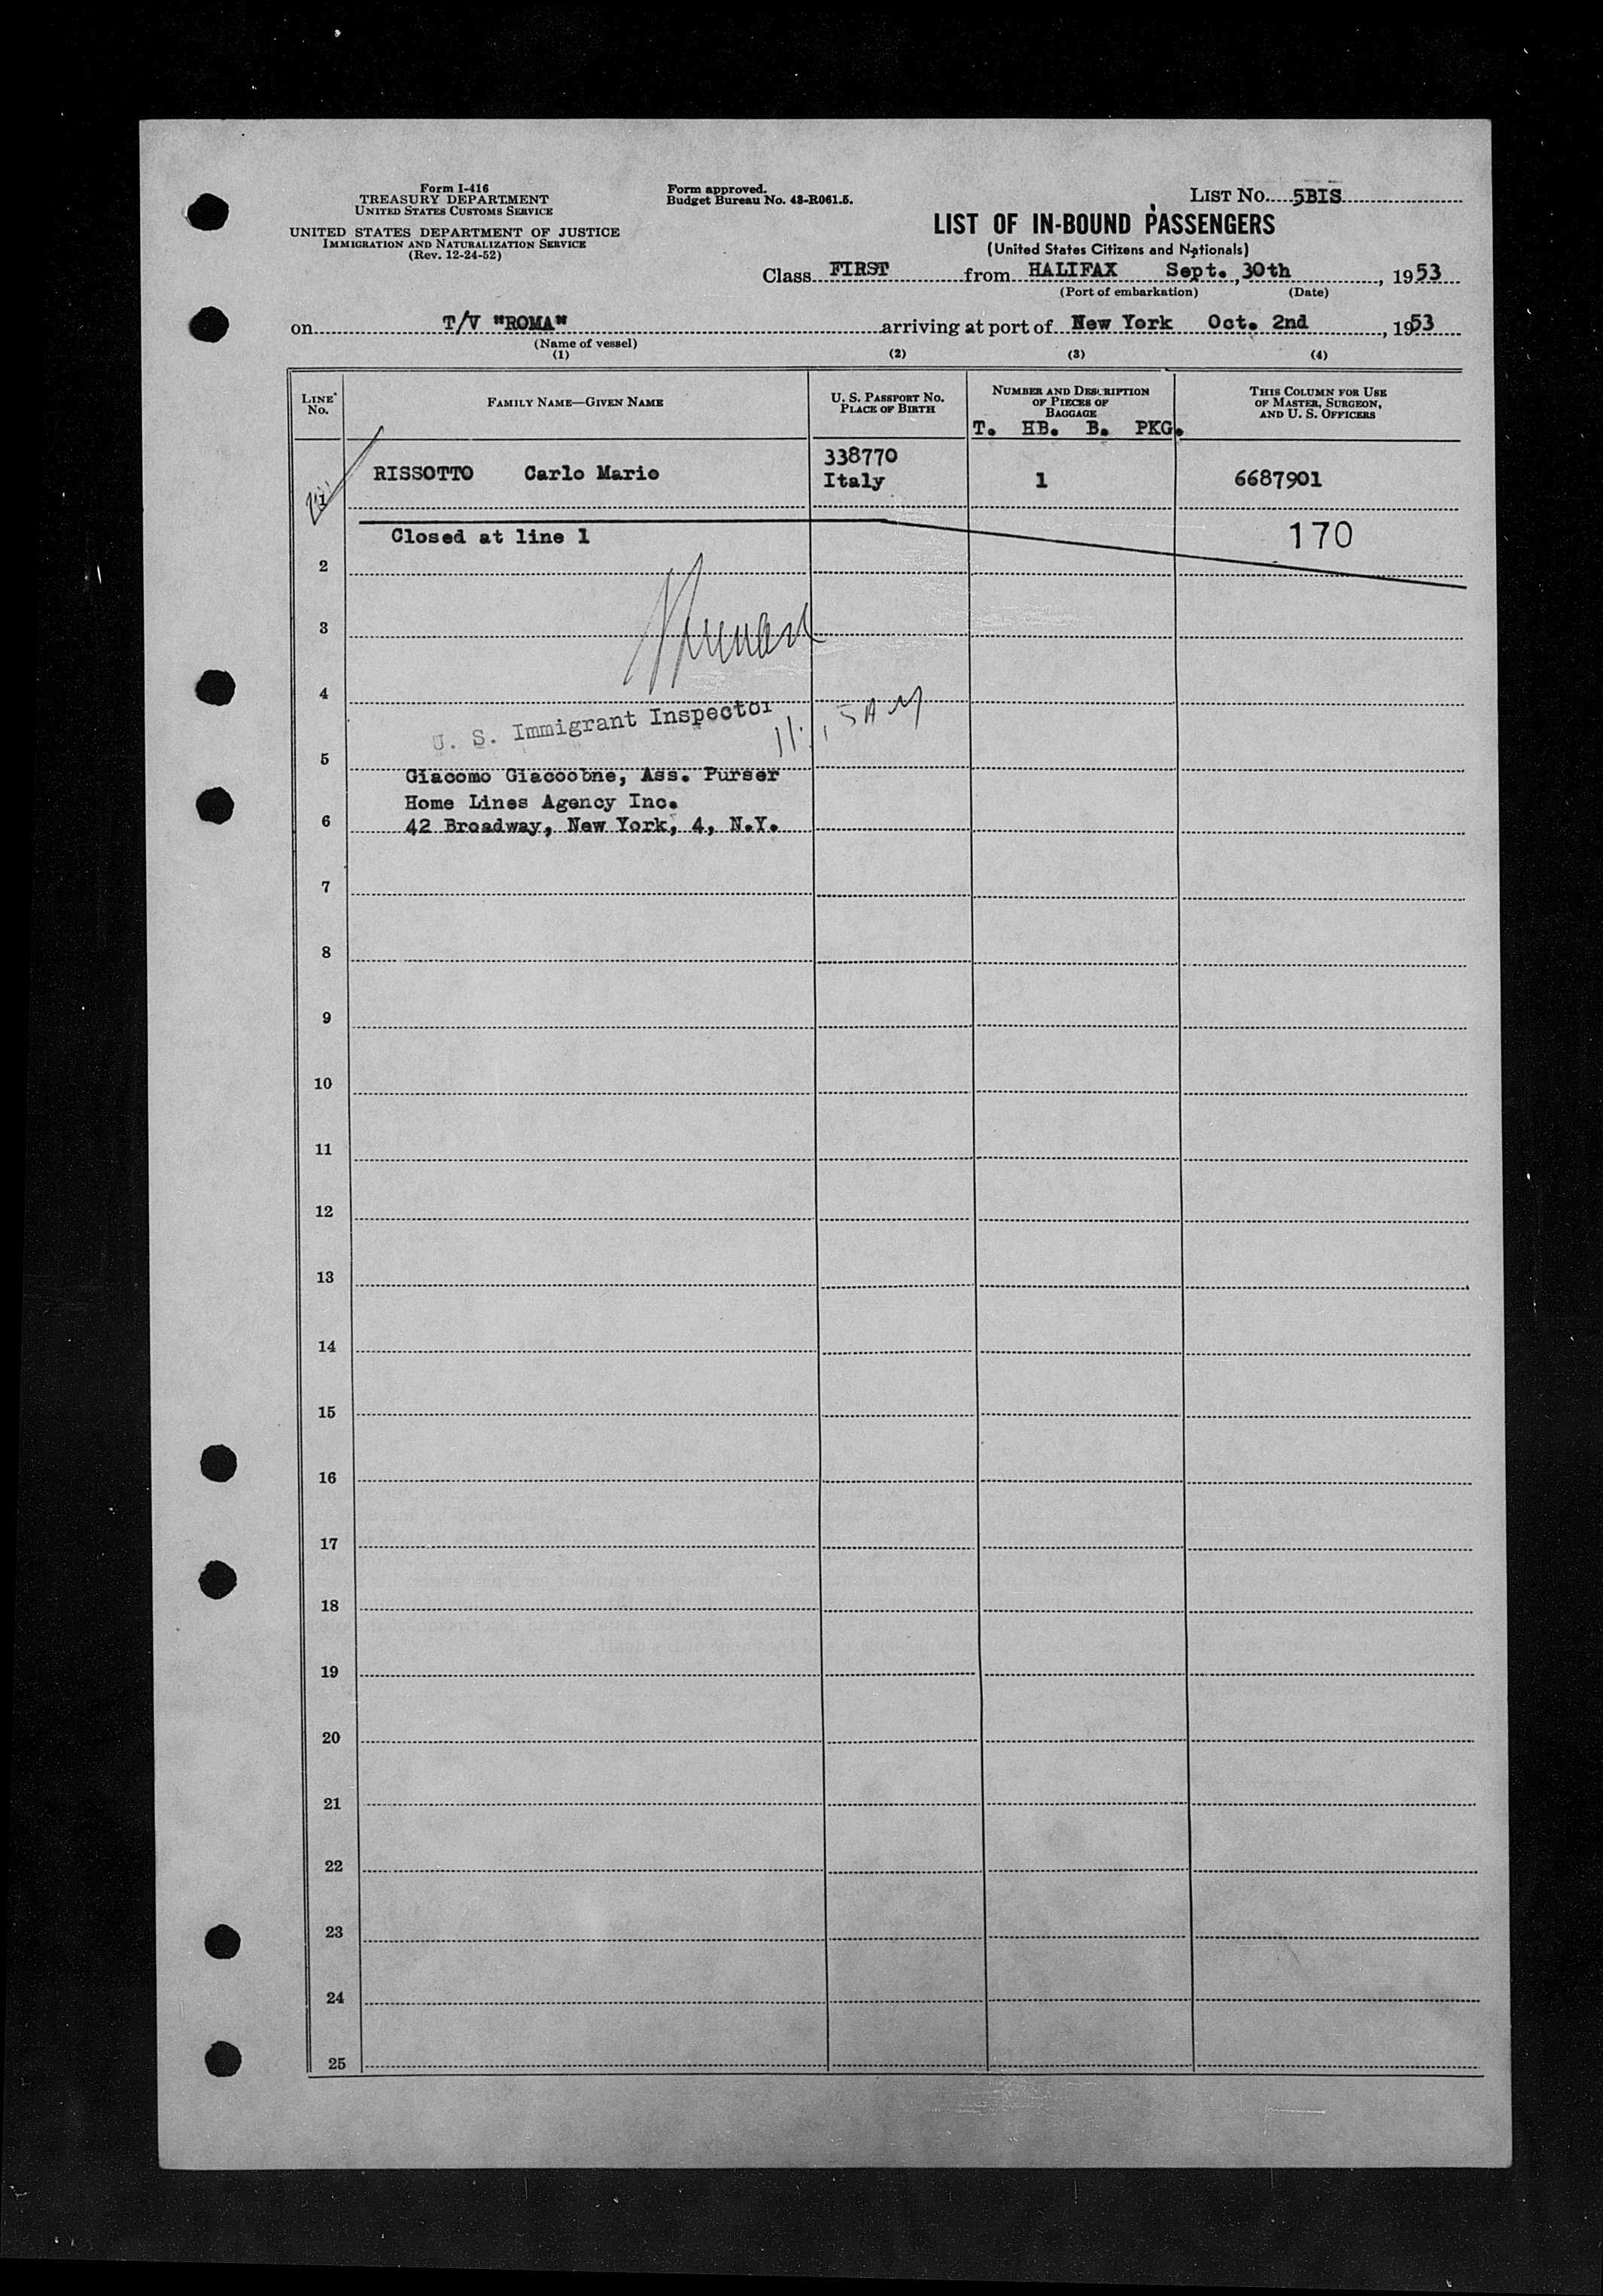 Form I-416
TREASURY DEPARTMENT
UNITED STATES CUSTOMS SERVICE
UNITED STATES DEPARTMENT OF JUSTICE
IMMIGRATION AND NATURALIZATION SERVICE
(Rev. 12-24-52)
Form approved.
Budget Bureau No. 43-R061.5.
LIST No. 5BIS
LIST OF IN-BOUND PASSENGERS
(United States Citizens and Nationals)
Class FIRST from HALIFAX Sept., 30th, 1953
(Port of embarkation) (Date)
on T/V "ROMA" arriving at port of New York Oct. 2nd, 1953
(Name of vessel)
(1) (2) (3) (4)
LINE No.
FAMILY NAME—GIVEN NAME
U. S. PASSPORT NO.
PLACE OF BIRTH
NUMBER AND DESCRIPTION
OF PIECES OF
BAGGAGE
T. HB. B. PKG.
THIS COLUMN FOR USE
OF MASTER, SURGEON,
AND U. S. OFFICERS
1 RISSOTTO Carlo Mario 338770 Italy 1 6687901
Closed at line 1 170
2
3
4
U. S. Immigrant Inspector
5
Giacomo Giacoobne, Ass. Purser
Home Lines Agency Inc.
6 42 Broadway, New York, 4, N.Y.
7
8
9
10
11
12
13
14
15
16
17
18
19
20
21
22
23
24
25